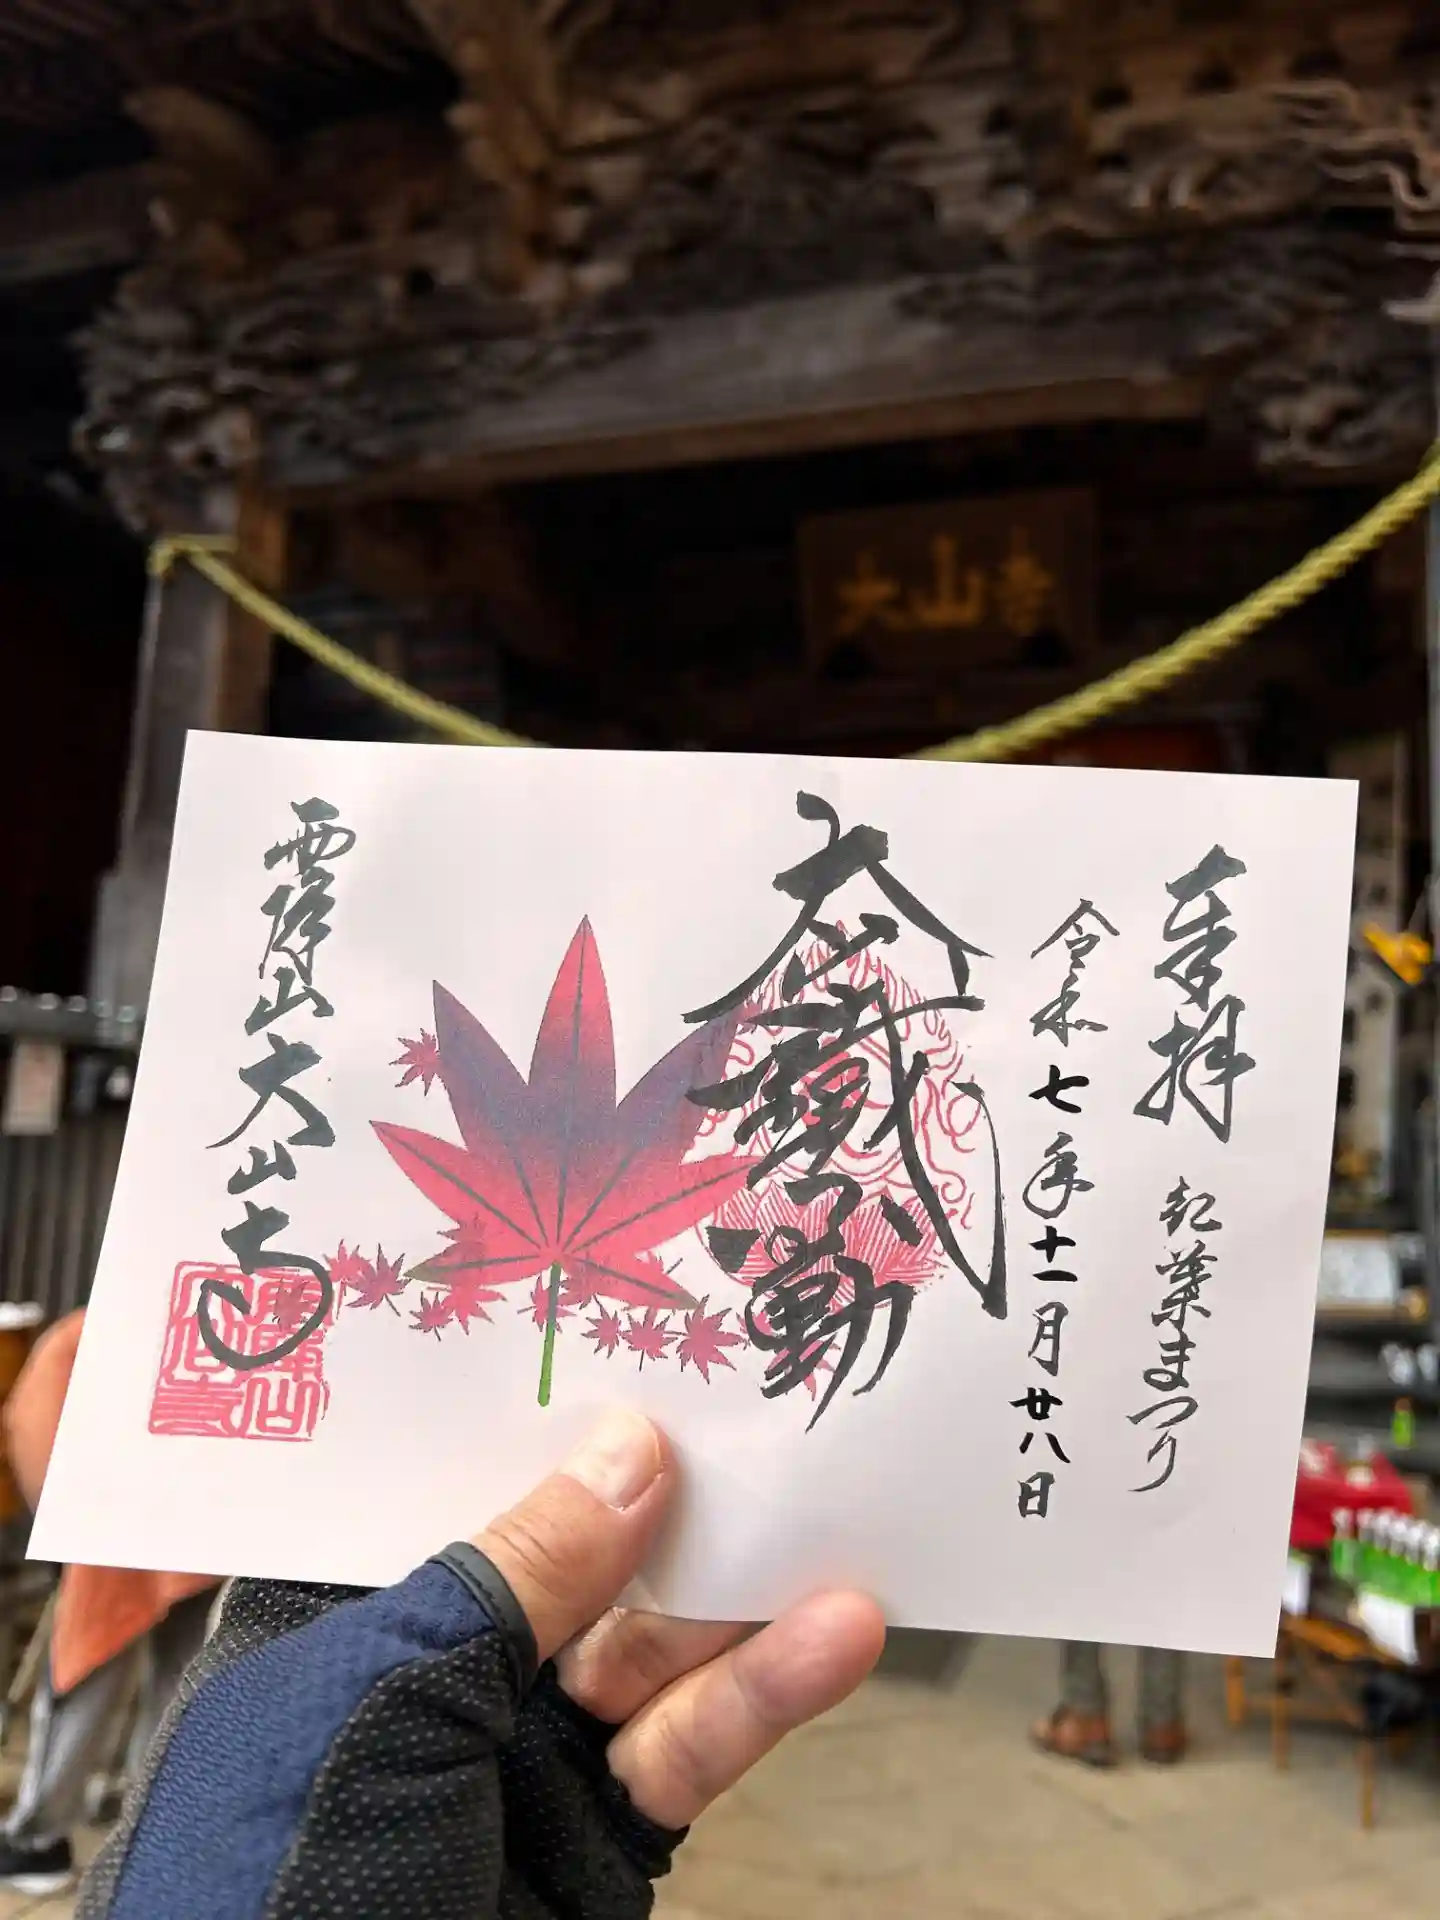 大山寺
奉拝 紅葉まつり
令和七年十一月廿八日
大鐵不動
雨降山大山寺
雨降山
大山寺